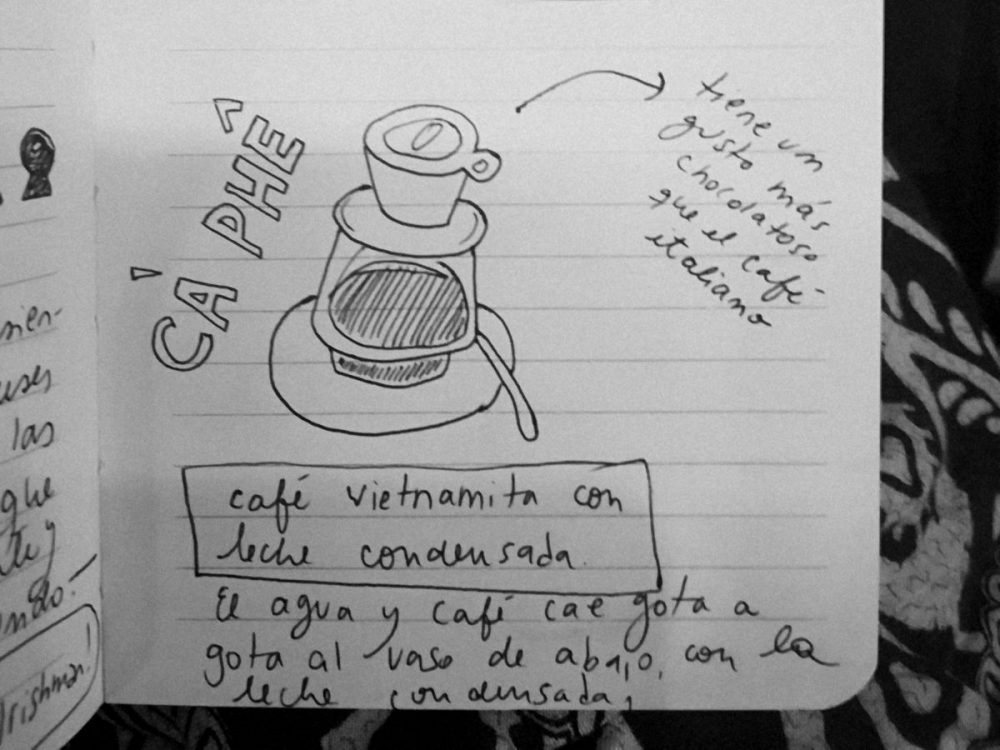 CÁ PHÊ
tiene un
gusto más
chocolatoso
que el café
italiano
café vietnamita con
leche condensada.
El agua y café cae gota a
gota al vaso de abajo, con la
leche condensada,
las
que